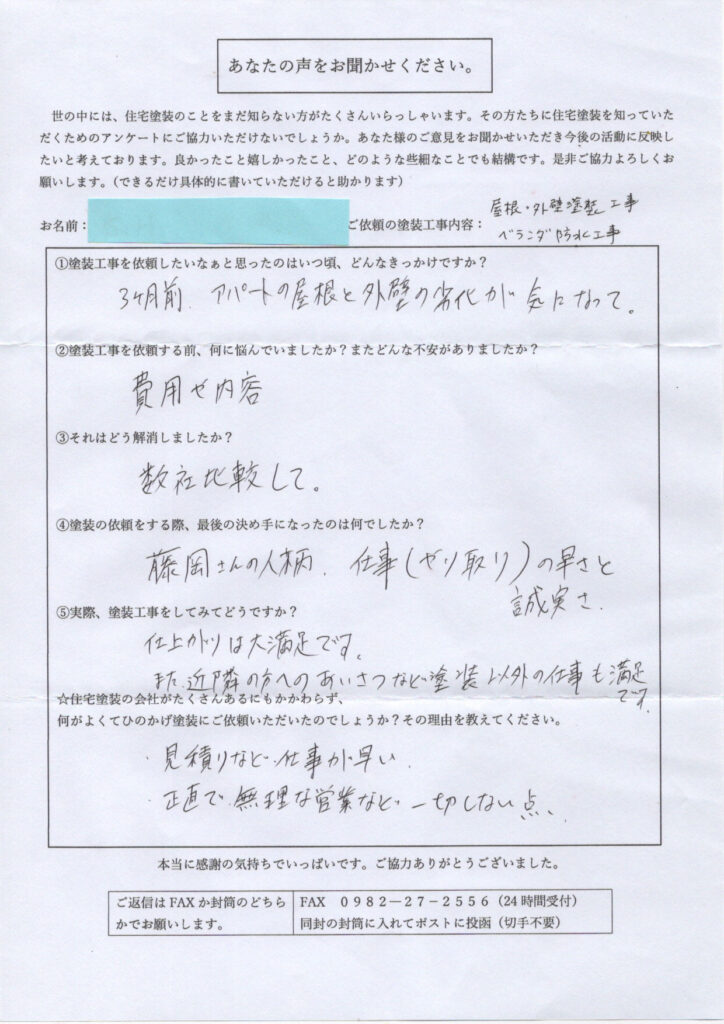 あなたの声をお聞かせください。
世の中には、住宅塗装のことをまだ知らない方がたくさんいらっしゃいます。その方たちに住宅塗装を知っていた
だくためのアンケートにご協力いただけないでしょうか。あなた様のご意見をお聞かせいただき今後の活動に反映し
たいと考えております。良かったこと嬉しかったこと、どのような些細なことでも結構です。是非ご協力よろしくお
願いします。(できるだけ具体的に書いていただけると助かります)
お名前：
ご依頼の塗装工事内容：
屋根・外壁塗装工事
ベランダ防水工事
①塗装工事を依頼したいなぁと思ったのはいつ頃、どんなきっかけですか？
3ヶ月前、アパートの屋根と外壁の劣化が気になって。
②塗装工事を依頼する前、何に悩んでいましたか？またどんな不安がありましたか？
費用や内容
③それはどう解消しましたか？
数社比較して。
④塗装の依頼をする際、最後の決め手になったのは何でしたか？
藤岡さんの人柄、仕事(やり取り)の早さと
誠実さ、
⑤実際、塗装工事をしてみてどうですか？
仕上がりは大満足です。
また、近隣の方へのあいさつなど塗装以外の仕事も満足
です。
☆住宅塗装の会社がたくさんあるにもかかわらず、
何がよくてひのかげ塗装にご依頼いただいたのでしょうか？その理由を教えてください。
・見積りなど仕事が早い、
・正直で無理な営業など一切しない点、
本当に感謝の気持ちでいっぱいです。ご協力ありがとうございました。
ご返信は FAX か封筒のどちら
かでお願いします。
FAX 0982―27-2556 (24時間受付)
同封の封筒に入れてポストに投函（切手不要）